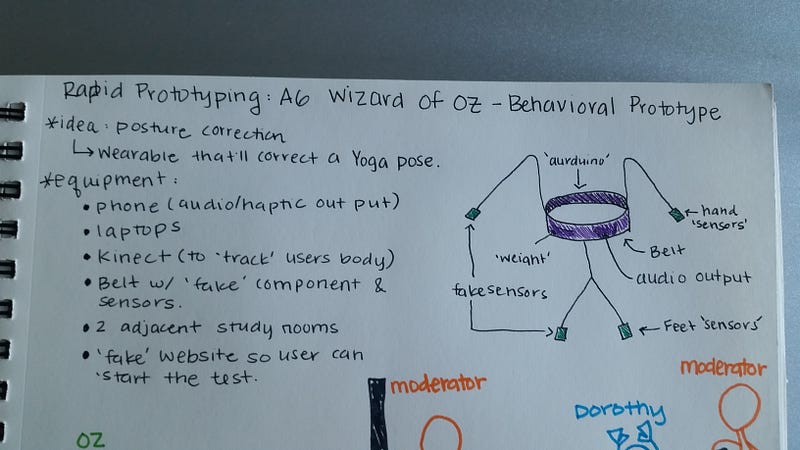 Rapid Prototyping: A6 Wizard of Oz - Behavioral Prototype
*idea: posture correction
↳ Wearable that'll correct a Yoga pose.
*equipment:
• phone (audio/haptic out put)
• laptops
• Kinect (to 'track' users body)
• Belt w/ 'fake' component &
sensors.
• 2 adjacent study rooms
• 'fake' website so user can
'start the test.
'aurduino'
hand
'sensors'
Belt
'weight'
audio output
fake sensors
Feet 'sensors'
moderator
moderator
Dorothy
OZ